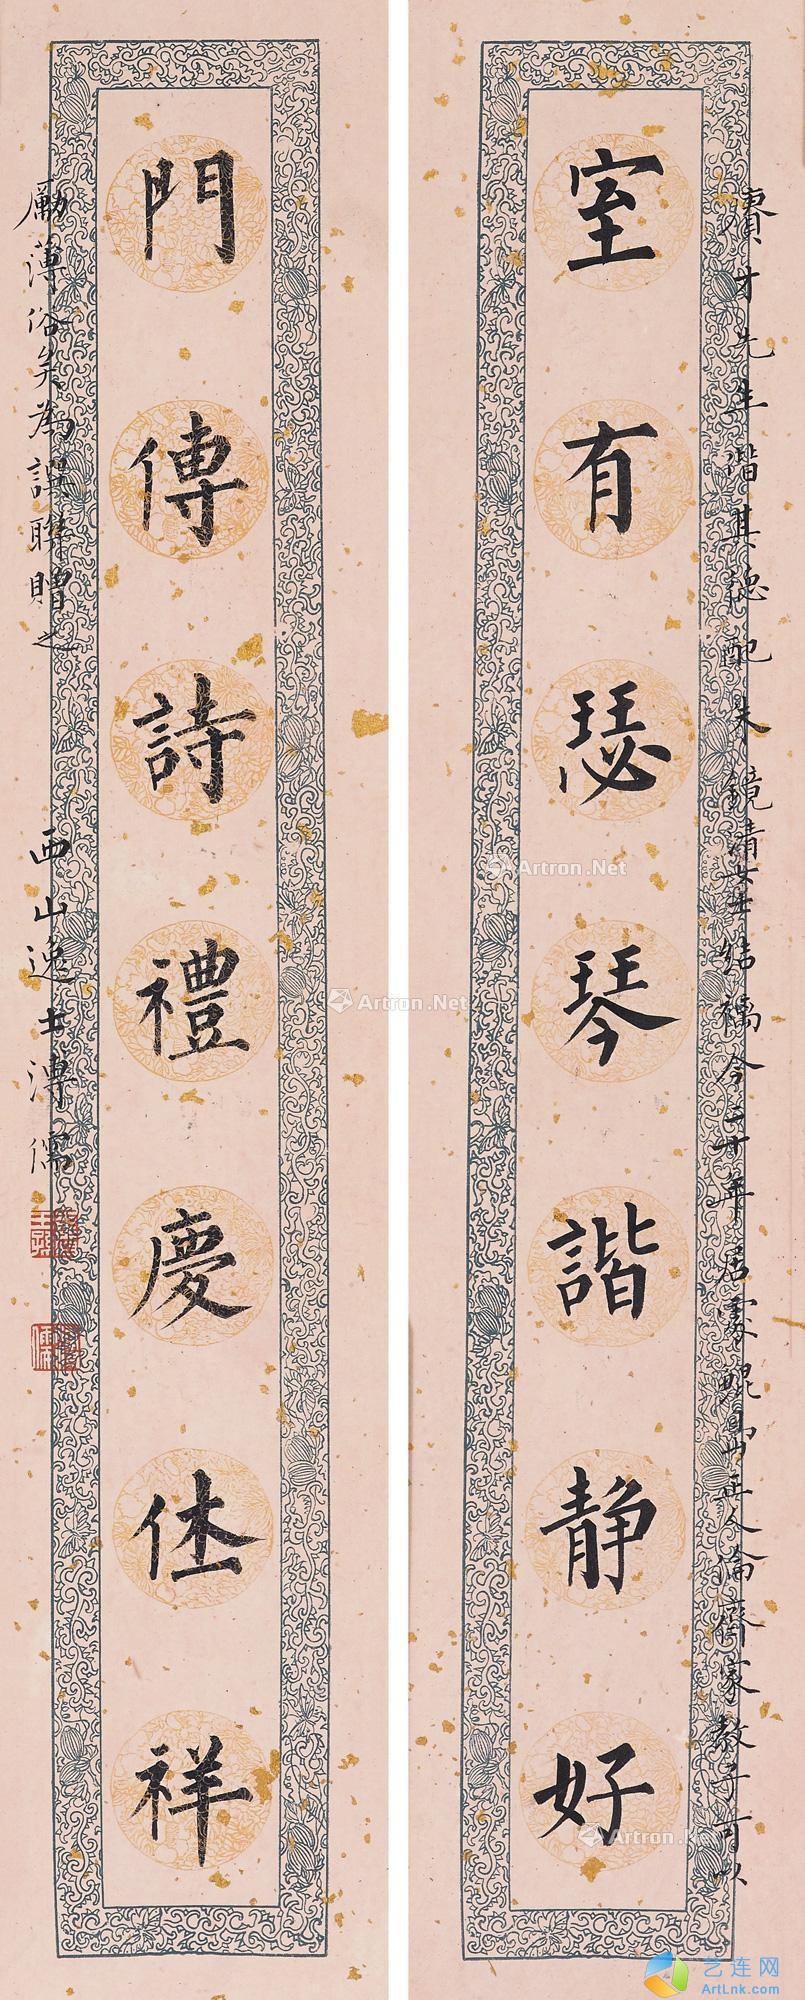 室有瑟琴諧静好
賡才先生諧其德配朱鏡清女士結褵今二十年居家黽勉正人倫齊家教子可以
門傳詩禮慶休祥
勵薄俗矣為譔聯贈之 西山逸士溥儒
Artron.Net
Artron.Net
Artron.Net
艺连网
ArtLnk.com